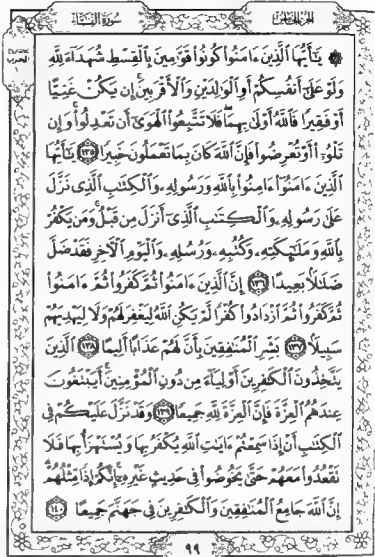 الجزء الخامس
سورة النساء
۞ يَٰٓأَيُّهَا ٱلَّذِينَ ءَامَنُواْ كُونُواْ قَوَّٰمِينَ بِٱلْقِسْطِ شُهَدَآءَ لِلَّهِ
وَلَوْ عَلَىٰٓ أَنفُسِكُمْ أَوِ ٱلْوَٰلِدَيْنِ وَٱلْأَقْرَبِينَۚ إِن يَكُنْ غَنِيًّا
أَوْ فَقِيرًا فَٱللَّهُ أَوْلَىٰ بِهِمَاۖ فَلَا تَتَّبِعُواْ ٱلْهَوَىٰٓ أَن تَعْدِلُواْۚ وَإِن
تَلْوُۥٓاْ أَوْ تُعْرِضُواْ فَإِنَّ ٱللَّهَ كَانَ بِمَا تَعْمَلُونَ خَبِيرًا ١٣٥ يَٰٓأَيُّهَا
ٱلَّذِينَ ءَامَنُوٓاْ ءَامِنُواْ بِٱللَّهِ وَرَسُولِهِۦ وَٱلْكِتَٰبِ ٱلَّذِى نَزَّلَ
عَلَىٰ رَسُولِهِۦ وَٱلْكِتَٰبِ ٱلَّذِىٓ أَنزَلَ مِن قَبْلُۚ وَمَن يَكْفُرْ
بِٱللَّهِ وَمَلَٰٓئِكَتِهِۦ وَكُتُبِهِۦ وَرُسُلِهِۦ وَٱلْيَوْمِ ٱلْأَخِرِ فَقَدْ ضَلَّ
ضَلَٰلًۢا بَعِيدًا ١٣٦ إِنَّ ٱلَّذِينَ ءَامَنُواْ ثُمَّ كَفَرُواْ ثُمَّ ءَامَنُواْ
ثُمَّ كَفَرُواْ ثُمَّ ٱزْدَادُواْ كُفْرًا لَّمْ يَكُنِ ٱللَّهُ لِيَغْفِرَ لَهُمْ وَلَا لِيَهْدِيَهُمْ
سَبِيلًۢا ١٣٧ بَشِّرِ ٱلْمُنَٰفِقِينَ بِأَنَّ لَهُمْ عَذَابًا أَلِيمًا ١٣٨ ٱلَّذِينَ
يَتَّخِذُونَ ٱلْكَٰفِرِينَ أَوْلِيَآءَ مِن دُونِ ٱلْمُؤْمِنِينَۚ أَيَبْتَغُونَ
عِندَهُمُ ٱلْعِزَّةَ فَإِنَّ ٱلْعِزَّةَ لِلَّهِ جَمِيعًا ١٣٩ وَقَدْ نَزَّلَ عَلَيْكُمْ فِى
ٱلْكِتَٰبِ أَنْ إِذَا سَمِعْتُمْ ءَايَٰتِ ٱللَّهِ يُكْفَرُ بِهَا وَيُسْتَهْزَأُ بِهَا فَلَا
تَقْعُدُواْ مَعَهُمْ حَتَّىٰ يَخُوضُواْ فِى حَدِيثٍ غَيْرِهِۦٓۚ إِنَّكُمْ إِذًا مِّثْلُهُمْۗ
إِنَّ ٱللَّهَ جَامِعُ ٱلْمُنَٰفِقِينَ وَٱلْكَٰفِرِينَ فِى جَهَنَّمَ جَمِيعًا ١٤٠
٩٩